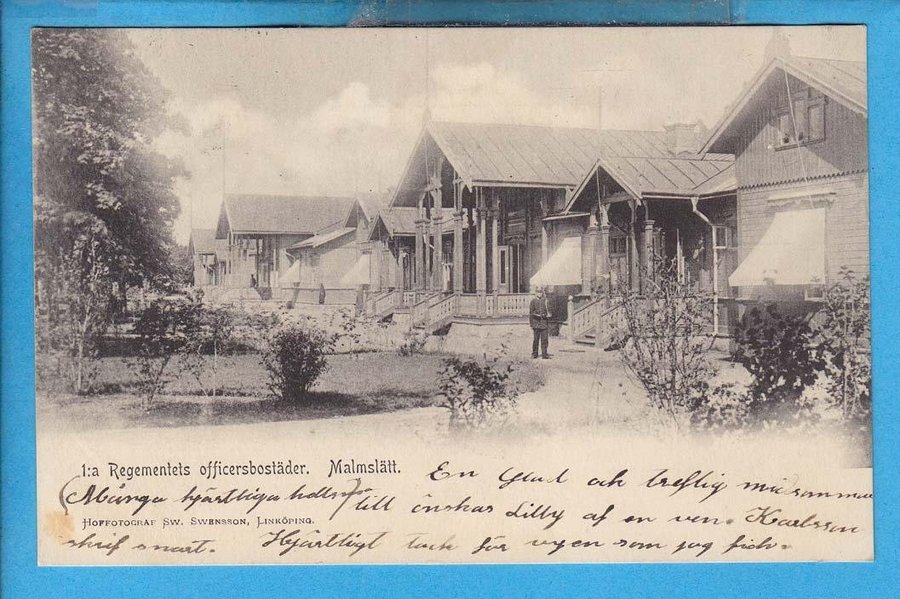 1:a Regementets officersbostäder. Malmslätt.
En Glad och treflig midsommar
(Många hjärtliga helsn) till önskas Lilly af en ven. Karlsson
HOFFOTOGRAF SW. SWENSSON, LINKÖPING.
skrif snart. Hjärtligt tack för vyen som jag fick.